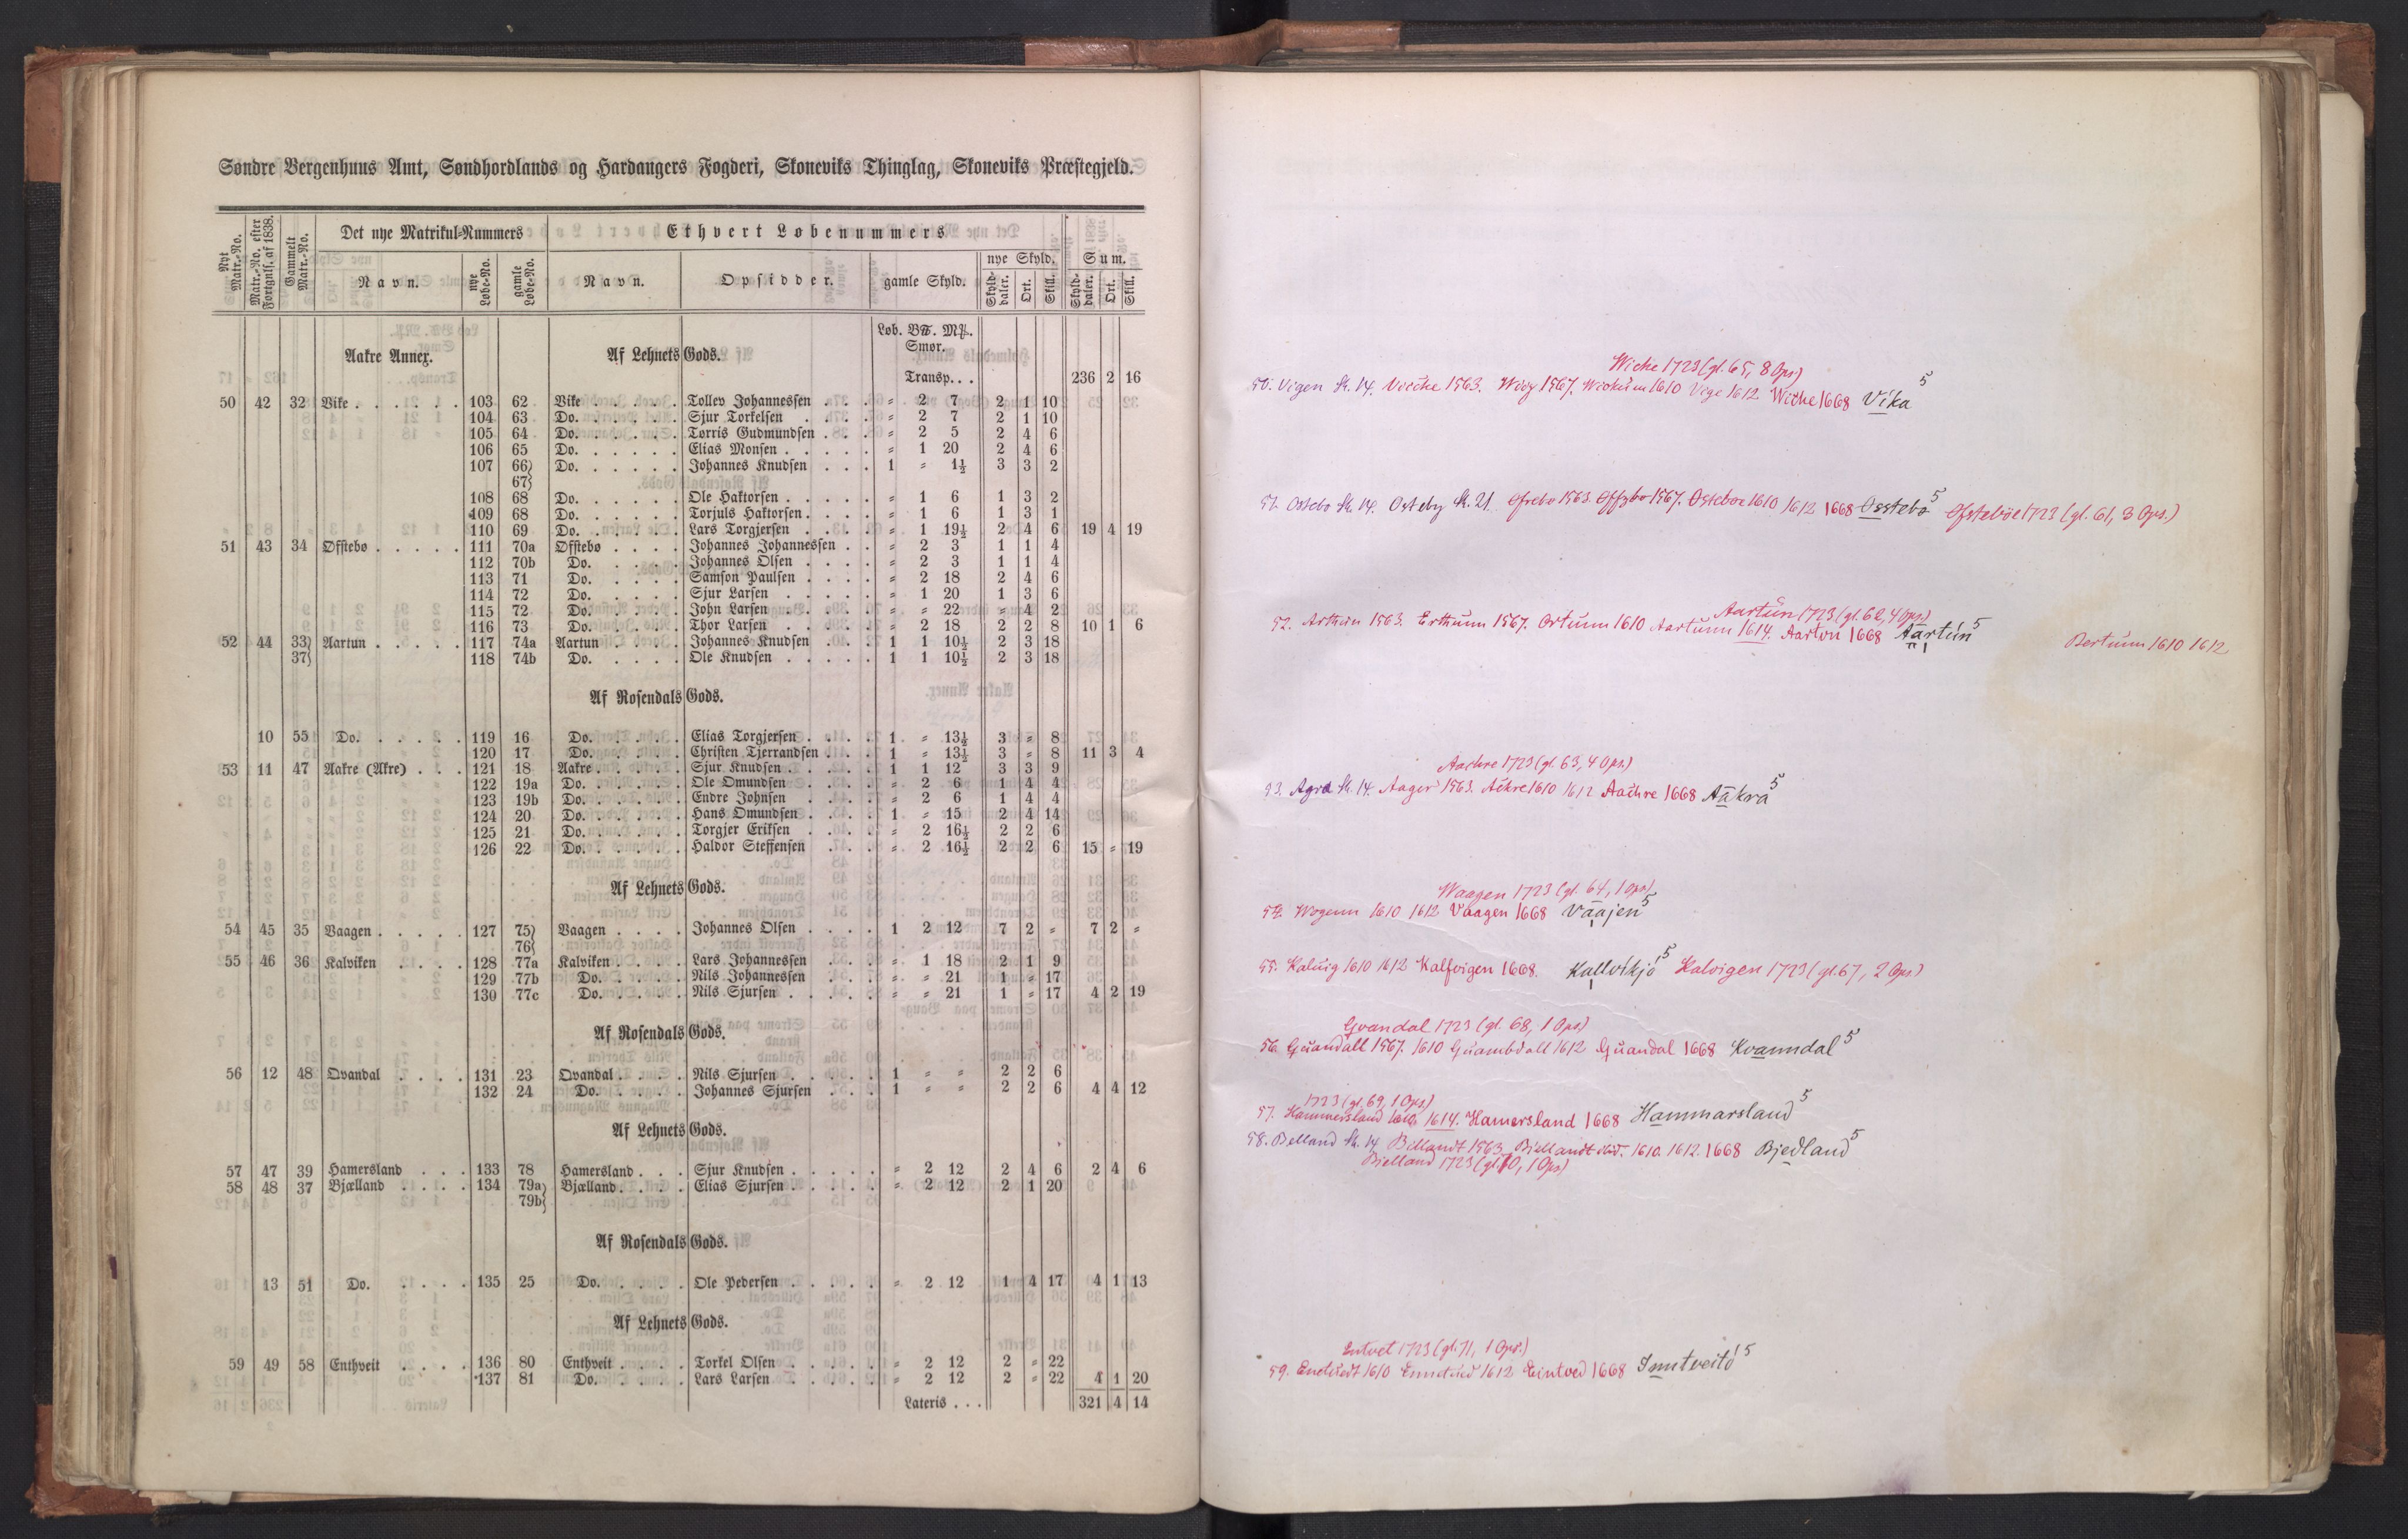 Søndre Bergenhuus Amt, Søndhordlands og Hardangers Fogderi, Skoneviks Thinglag, Skoneviks Præstegjeld.
Nyt Matr.-No. Matr.-No. efter Fortgnls. af 1838. Gammelt Matr.-No. Det nye Matrikul-Nummers Ethvert Løbenummers
nye Skyld. Sum.
Navn. nye Løbe-No. gamle Løbe-No. Navn. Opsidder. gamle Skyld. Skyld-daler. Ort. Skill. Skyld-daler. Ort. Skill.
Løb. B℔. M℔.
Smør.
Aakre Annex. Af Lehnets Gods.
Transp. . . 236 2 16
50 42 32 Vike . . . . . . 103 62 Vike . . . . . Tollev Johannessen . . . „ 2 7 2 1 10
104 63 Do. . . . . . Sjur Torkelsen . . . . „ 2 7 2 1 10
105 64 Do. . . . . . Tørris Gudmundsen . . . „ 2 5 2 4 6
106 65 Do. . . . . . Elias Monsen . . . . . „ 1 20 2 4 6
107 66} Do. . . . . . Johannes Knudsen . . . 1 „ 1½ 3 3 2
67}
108 68 Do. . . . . . Ole Haktorsen . . . . . „ 1 6 1 3 2
109 68 Do. . . . . . Torjuls Haktorsen . . . . „ 1 6 1 3 1
110 69 Do. . . . . . Lars Torgjersen . . . . „ 1 19½ 2 4 6 19 4 19
51 43 34 Øfstebø . . . . . 111 70a Øfstebø . . . . Johannes Johannessen . . „ 2 3 1 1 4
112 70b Do. . . . . Johannes Olsen . . . . „ 2 3 1 1 4
113 71 Do. . . . . Samson Paulsen . . . . „ 2 18 2 4 6
114 72 Do. . . . . Sjur Larsen . . . . . „ 1 20 1 3 6
115 72 Do. . . . . John Larsen . . . . . „ „ 22 „ 4 2
116 73 Do. . . . . Thor Larsen . . . . . „ 2 18 2 2 8 10 1 6
52 44 33} Aartun . . . . . 117 74a Aartun . . . . Johannes Knudsen . . . 1 1 10½ 2 3 18
37} 118 74b Do. . . . . Ole Knudsen . . . . . 1 1 10½ 2 3 18
Af Rosendals Gods.
10 55 Do. . . . . . 119 16 Do. . . . . Elias Torgjersen . . . . 1 „ 13½ 3 „ 8
120 17 Do. . . . . Christen Tjerrandsen . . . 1 „ 13½ 3 „ 8 11 3 4
53 11 47 Aakre (Akre) . . . 121 18 Aakre . . . . . Sjur Knudsen . . . . . 1 1 12 3 3 9
122 19a Do. . . . . . Ole Omundsen . . . . „ 2 6 1 4 4
123 19b Do. . . . . . Endre Johnsen . . . . „ 2 6 1 4 4
124 20 Do. . . . . . Hans Omundsen . . . . 1 „ 15 2 4 14
125 21 Do. . . . . . Torgjer Eriksen . . . . „ 2 16½ 2 2 6
126 22 Do. . . . . . Haldor Steffensen . . . „ 2 16½ 2 2 6 15 „ 19
Af Lehnets Gods.
54 45 35 Vaagen . . . . . 127 75} Vaagen . . . . Johannes Olsen . . . . 1 2 12 7 2 „ 7 2 „
76}
55 46 36 Kalviken . . . . 128 77a Kalviken . . . . Lars Johannessen . . . „ 1 18 2 1 9
129 77b Do. . . . . Nils Johannessen . . . „ „ 21 1 „ 17
130 77c Do. . . . . Nils Sjursen . . . . . „ „ 21 1 „ 17 4 2 19
Af Rosendals Gods.
56 12 48 Qvandal . . . . 131 23 Qvandal . . . . Nils Sjursen . . . . . 1 „ „ 2 2 6
132 24 Do. . . . . Johannes Sjursen . . . 1 „ „ 2 2 6 4 4 12
Af Lehnets Gods.
57 47 39 Hamersland . . . 133 78 Hamersland . . . Sjur Knudsen . . . . . „ 2 12 2 4 6 2 4 6
58 48 37 Bjælland . . . . 134 79a} Bjælland . . . . Elias Sjursen . . . . . „ 2 12 2 1 20
79b}
Af Rosendals Gods.
13 51 Do. . . . . 135 25 Do. . . . . Ole Pedersen . . . . . „ 2 12 1 4 17 4 1 13
Af Lehnets Gods.
59 49 58 Enthveit . . . . 136 80 Enthveit . . . . Torkel Olsen . . . . . „ 2 12 2 „ 22
137 81 Do. . . . . Lars Larsen . . . . . „ 2 12 2 „ 22 4 1 20
Lateris . . . 321 4 14
Wiche 1723 (gl. 65, 8 Ops.)
50. Vigen St. 14. Vicche 1563. Wiig 1567. Wickum 1610 Vige 1612 Wiche 1668 Vika 5
51. Ostebo St. 14. Osteby St. 21. Øfrebo 1563. Offzbo 1567. Osteboe 1610 1612 1668 Osstebø 5 Øfstebøe 1723 (gl. 61, 3 Ops.)
Aartun 1723 (gl. 62, 4 Ops.)
52. Arthun 1563. Erthum 1567. Ortum 1610 Aartunn 1614. Aarton 1668 Aartun 5 Bertum 1610 1612
Aachre 1723 (gl. 63, 4 Ops.)
53. Agra St. 14. Aager 1563. Ackre 1610 1612 Aachre 1668 Aakra 5
Waagen 1723 (gl. 64, 1 Ops)
54. Wogenn 1610 1612 Vaagen 1668 Vaajen 5
55. Kaluig 1610 1612 Kalfvigen 1668. Kallvikjo 5 Kalvigen 1723 (gl. 67, 2 Ops)
Qvandal 1723 (gl. 68, 1 Ops)
56. Quandall 1567. 1610 Quambdall 1612 Quandal 1668 Kvanndal 5
1723 (gl. 69, 1 Ops)
57. Hammersland 1610, 1614. Hamersland 1668 Hammarsland 5
58. Belland St. 14 Bellandt 1563 Biellandt 1610. 1612. 1668 Bjedland 5
Bielland 1723 (gl. 70, 1 Ops)
Entvet 1723 (gl. 71, 1 Ops.)
59. 1610 1612 Eintved 1668 Inntveito 5